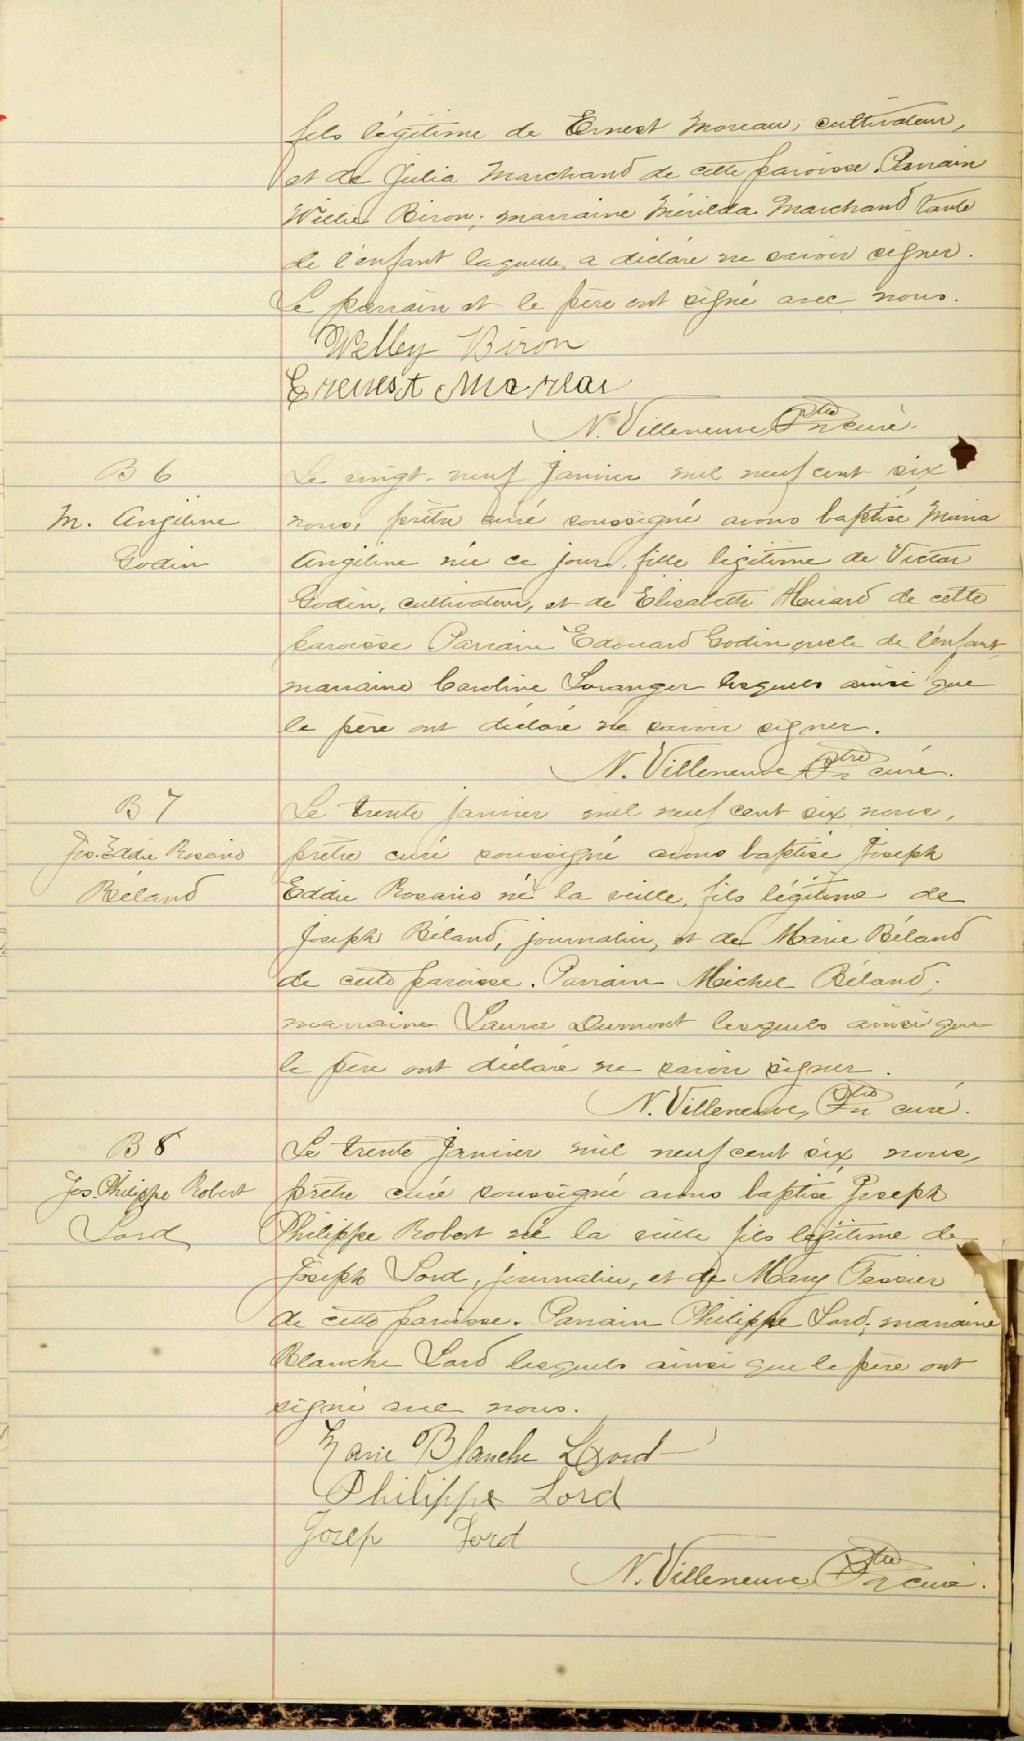 fils légitime de Ernest Moreau, cultivateur,
et de Julia Marchand de cette paroisse. Parrain
Willie Biron, marraine Mérilda Marchand tante
de l'enfant laquelle a déclaré ne savoir signer.
Le parrain et le père ont signé avec nous.
Welley Biron
Erenest
N. Villeneuve Ptre curé.
B 6
M. Angéline
Godin
Le vingt-neuf Janvier mil neuf cent six
nous, prêtre curé soussigné avons baptisé Maria
Angéline née ce jour, fille légitime de Victor
Godin, cultivateur, et de Elisabeth Huard de cette
paroisse Parrain Edouard Godin oncle de l'enfant,
marraine Caroline Loranger lesquels ainsi que
le père ont déclaré ne savoir signer.
N. Villeneuve Ptre curé.
B 7
Jos. Eddie Rosario
Béland
Le trente janvier mil neuf cent six nous,
prêtre curé soussigné avons baptisé Joseph
Eddie Rosario né la veille, fils légitime de
Joseph Béland, journalier, et de Marie Béland
de cette paroisse. Parrain Michel Béland,
marraine Laura Dumont lesquels ainsi que
le père ont déclaré ne savoir signer.
N. Villeneuve, Ptre curé.
B 8
Jos. Philippe Robert
Lord
Le trente Janvier mil neuf cent six nous,
prêtre curé soussigné avons baptisé Joseph
Philippe Robert né la veille fils légitime de
Joseph Lord, journalier, et de Mary Tessier
de cette paroisse. Parrain Philippe Lord, marraine
Blanche Lord lesquels ainsi que le père ont
signé avec nous.
Marie Blanche Lord
Philippe Lord
Josep Lord
N. Villeneuve Ptre curé.